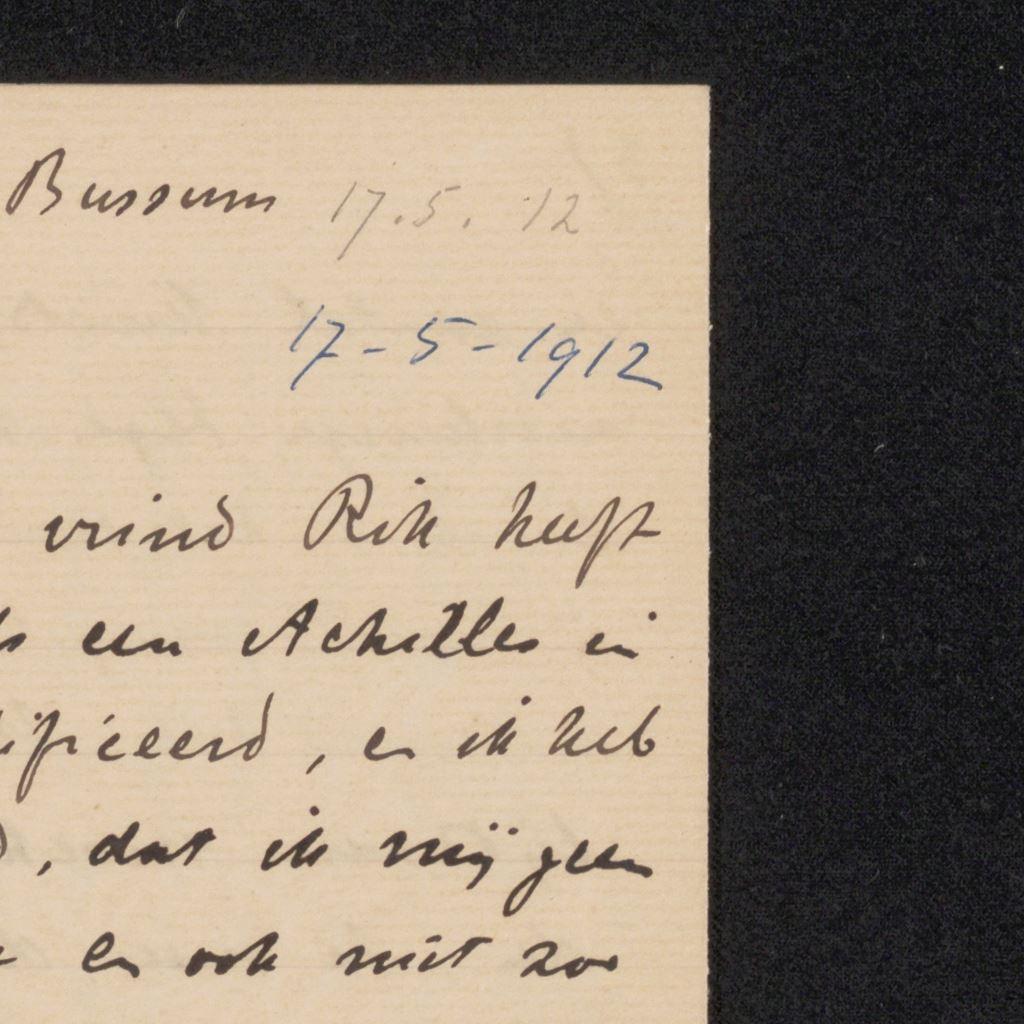 Bussum 17.5.'12
17-5-1912
vriend Rik heeft
een Achilles in
ificeerd, en ik heb
, dat ik mij geen
en ook niet zoo